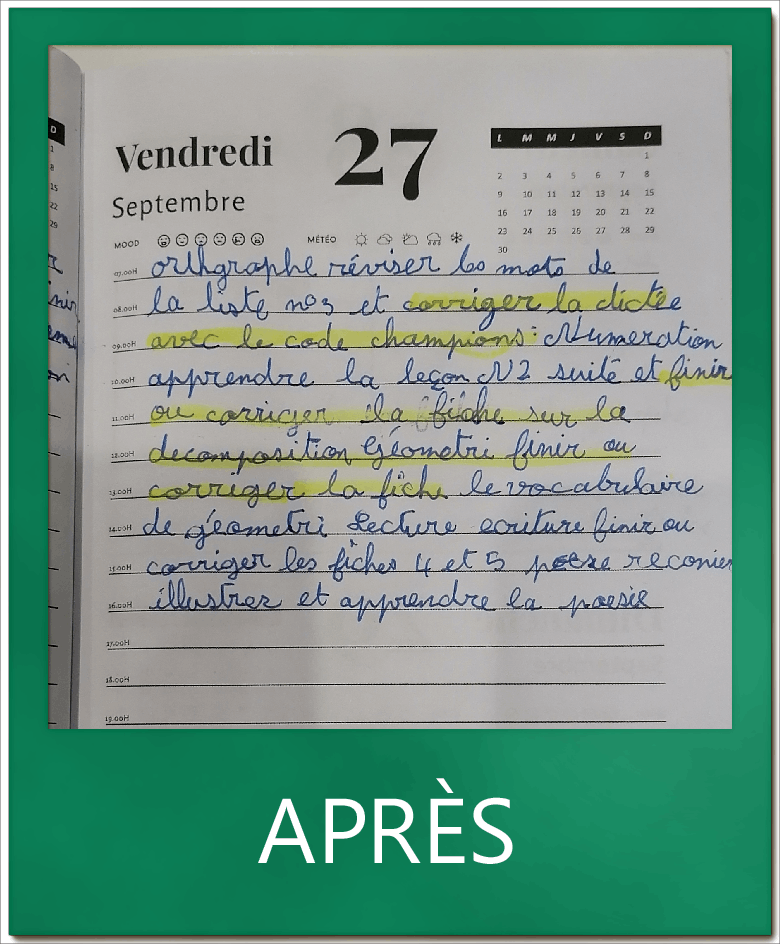 D
1
8
15
22
29
Vendredi
27
Septembre
L M M J V S D
1
2 3 4 5 6 7 8
9 10 11 12 13 14 15
16 17 18 19 20 21 22
23 24 25 26 27 28 29
30
MOOD MÉTÉO
07.00H orthgraphe réviser les mots de
08.00H la liste n°3 et corriger la dictée
09.00H avec le code champions: Numeration
10.00H apprendre la leçon N2 suite et finir
11.00H ou corriger la fiche sur la
12.00H decomposition Géometri finir ou
13.00H corriger la fiche le vocabulaire
14.00H de géometri Lecture ecriture finir ou
15.00H corriger les fiches 4 et 5
16.00H illustrer et apprendre la poesie
17.00H
18.00H
19.00H
APRÈS